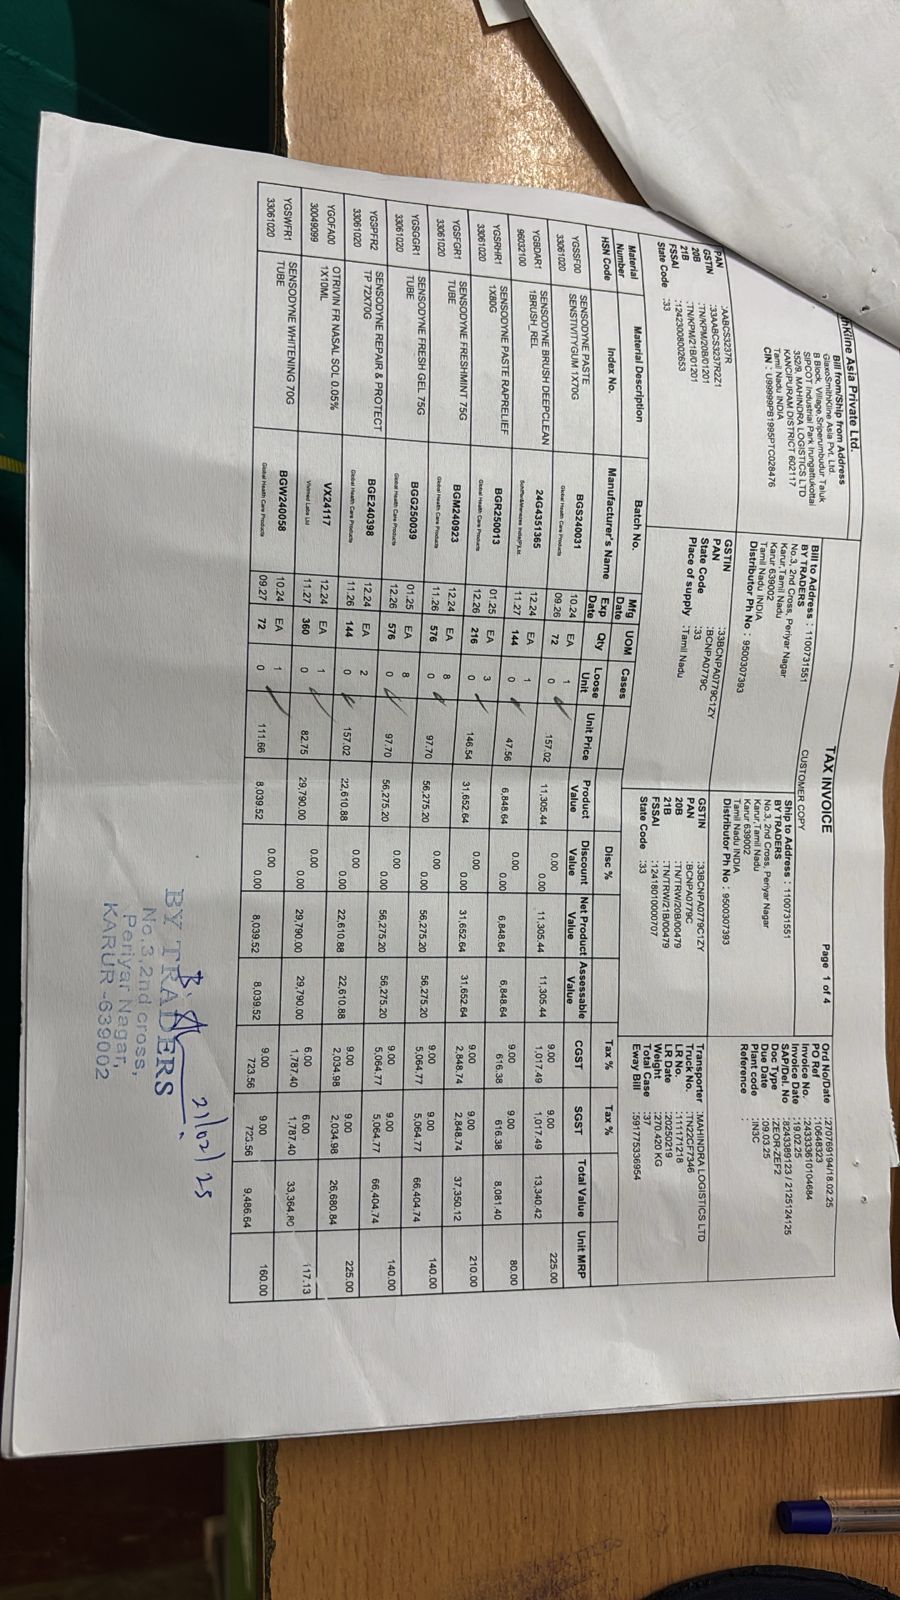 hKline Asia Private Ltd.
TAX INVOICE
Page 1 of 4
CUSTOMER COPY
Bill from/Ship from Address
GlaxoSmithKline Asia Pvt. Ltd.
B Block, Village,Sriperumbudur Taluk
SIPCOT Industrial Park Irungattukottai
352/9, MAHINDRA LOGISTICS LTD
KANCIPURAM DISTRICT 602117
Tamil Nadu INDIA
CIN : U99999PB1995PTC028476
Bill to Address : 1100731551
BY TRADERS
No.3, 2nd Cross, Periyar Nagar
Karur,Tamil Nadu
Karur 639002
Tamil Nadu INDIA
Distributor Ph No : 9500307393
Ship to Address : 1100731551
BY TRADERS
No.3, 2nd Cross, Periyar Nagar
Karur,Tamil Nadu
Karur 639002
Tamil Nadu INDIA
Distributor Ph No : 9500307393
Ord No/Date :270769194/18.02.25
PO Ref :10648323
Invoice No. :2433361010468​4
Invoice Date :19.02.25
SAP/Del. No :8243389123 / 2125124125
Doc Type :ZEOR-ZEF2
Due Date :09.03.25
Plant code :IN3C
Reference :
PAN :AABCS3237R
GSTIN :33AABCS3237R2Z1
20B :TN/KPM/20B/01201
21B :TN/KPM/21B/01201
FSSAI :12423008002653
State Code :33
GSTIN :33BCNPA0779C1ZY
PAN :BCNPA0779C
State Code :33
Place of supply :Tamil Nadu
GSTIN :33BCNPA0779C1ZY
PAN :BCNPA0779C
20B :TN/TRW/20B/00479
21B :TN/TRW/21B/00479
FSSAI :12418010000707
State Code :33
Transporter :MAHINDRA LOGISTICS LTD
Truck No. :TN22CF7346
LR No. :111171218
LR Date :20250219
Weight :270.420 KG
Total Case :37
Eway Bill :591775336954
Material Number Material Description Batch No. Mfg Date UOM Cases Unit Price Product Value Disc % Net Product Value Assessable Value Tax % Tax % Total Value Unit MRP
HSN Code Index No. Manufacturer's Name Exp Date Qty Loose Unit Discount Value CGST SGST
YGSSF00 SENSODYNE PASTE BGS240031 10.24 EA 1 157.02 11,305.44 0.00 11,305.44 11,305.44 9.00 9.00 13,340.42 225.00
33061020 SENSTIVITYGUM 1X70G Global Health Care Products 09.26 72 0 0.00 1,017.49 1,017.49
YGBDAR1 SENSODYNE BRUSH DEEPCLEAN 24G4351365 12.24 EA 1 47.56 6,848.64 0.00 6,848.64 6,848.64 9.00 9.00 8,081.40 80.00
96032100 1BRUSH_REL 11.27 144 0 0.00 616.38 616.38
YGSRHR1 SENSODYNE PASTE RAPRELIEF BGR250013 01.25 EA 3 146.54 31,652.64 0.00 31,652.64 31,652.64 9.00 9.00 37,350.12 210.00
33061020 1X80G Global Health Care Products 12.26 216 0 0.00 2,848.74 2,848.74
YGSFGR1 SENSODYNE FRESHMINT 75G BGM240923 12.24 EA 8 97.70 56,275.20 0.00 56,275.20 56,275.20 9.00 9.00 66,404.74 140.00
33061020 TUBE Global Health Care Products 11.26 576 0 0.00 5,064.77 5,064.77
YGSGGR1 SENSODYNE FRESH GEL 75G BGG250039 01.25 EA 8 97.70 56,275.20 0.00 56,275.20 56,275.20 9.00 9.00 66,404.74 140.00
33061020 TUBE Global Health Care Products 12.26 576 0 0.00 5,064.77 5,064.77
YGSPFR2 SENSODYNE REPAIR & PROTECT BGE240398 12.24 EA 2 157.02 22,610.88 0.00 22,610.88 22,610.88 9.00 9.00 26,680.84 225.00
33061020 TP 72X70G Global Health Care Products 11.26 144 0 0.00 2,034.98 2,034.98
YGOFA00 OTRIVIN FR NASAL SOL 0.05% VX24117 12.24 EA 1 82.75 29,790.00 0.00 29,790.00 29,790.00 6.00 6.00 33,364.80 117.13
30049099 1X10ML 11.27 360 0 0.00 1,787.40 1,787.40
YGSWFR1 SENSODYNE WHITENING 70G BGW240058 10.24 EA 1 111.66 8,039.52 0.00 8,039.52 8,039.52 9.00 9.00 9,486.64 160.00
33061020 TUBE Global Health Care Products 09.27 72 0 0.00 723.56 723.56
21/02/25
BY TRADERS
No.3, 2nd cross,
Periyar Nagar,
KARUR -639002